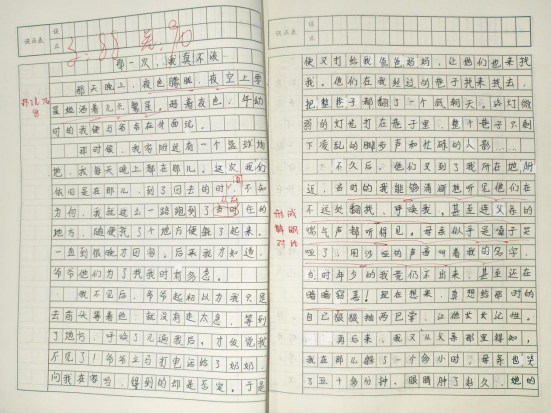 误正表
误
正
那一次，我真不该
那天晚上，夜色朦胧，夜空上零
星地
着几点繁星。踏着夜色，年幼
时的我便与爷爷在外面玩。
那时候，我家附近有一个篮球场
地，我每天晚上都在那儿。这次我们
依旧是在那儿，到了回去的时
不知
为何，我就这么一路跑到了当时住的
地方，随便找了个地方便躲了起来。
一直到很晚才回家。后来我才知道，
爷爷他们为了找我时有多急。
我不见后，爷爷起初以为我只是
去前头等着他，就没有走太急，等到
了地方，呼唤了几遍我后，才发觉我
不见了！爷爷立马打电话给了奶奶，
问我在家吗，得到的却是否定。于是
误正表
误
正
便又打给我爸爸妈妈，让他们也来找
我。他们在我经过的巷子找来找去，
把整巷子都翻了一个底朝天。路灯微
弱的灯光打在巷子里，整个巷子只剩
下凌乱的脚步声和忙碌的人影……
不久后，他们又到了我所在地附
近，当时的我能够清晰地听见他们在
不远处翻找，呼唤我。甚至连父亲的
喘气声都听得见。母亲似乎是嗓子是
哑了，用沙哑的声音叫着我的名字，
当时年少的我竟仍不出来，甚至还在
暗暗窃喜！现在想来，真想给那时的
自己狠狠抽两巴掌，让他长长记性。
再后来，我又从父亲那里得知，
我在那儿躲了一个多小时，母亲也哭
了五十多分钟，眼睛肿了起来，她的
形成
鲜明
对比